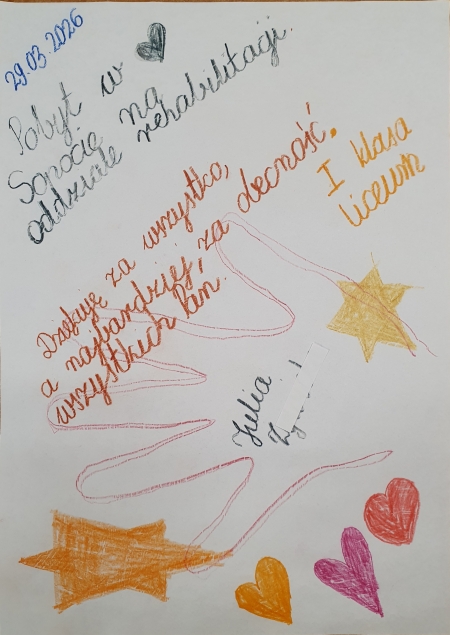 29.03.2026
Pobyt w
Sopocie na
oddziale rehabilitacji.
Dziękuję za wszystko,
a najbardziej, za obecność,
wszystkich Pań.
I klasa
liceum
Julia